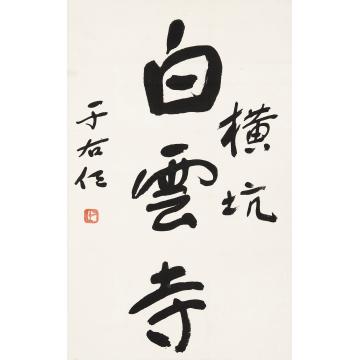 橫坑
白雲寺
于右任